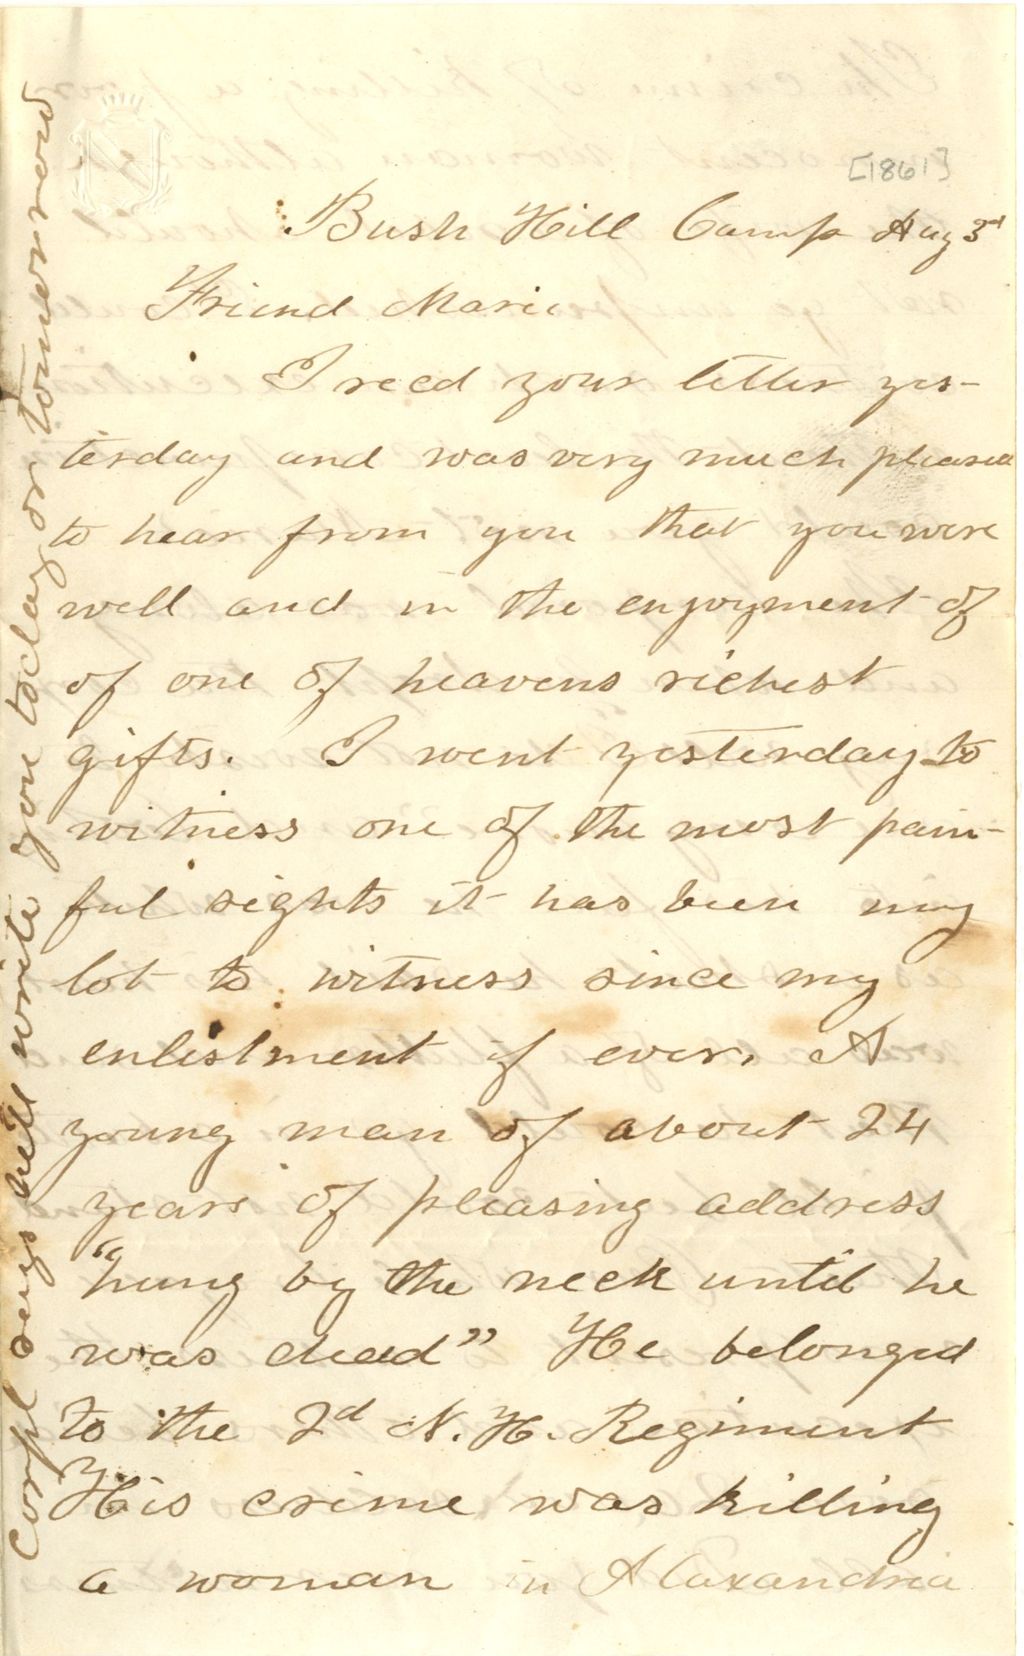 [1861]
Bush Hill Camp Aug 3rd
Friend Marie
I recd your letter yes-
terday and was very much pleased
to hear from you that you were
well and in the enjoyment of
of one of heavens richest
gifts. I went yesterday to
witness one of the most pain-
ful sights it has been my
lot to witness since my
enlistment if ever. A
young man of about 24
years of pleasing address
"hung by the neck until he
was dead" He belonged
to the 2d N. H. Regiment
His crime was killing
a woman in Alaxandria
Corpl says hell write you today or tomorrow